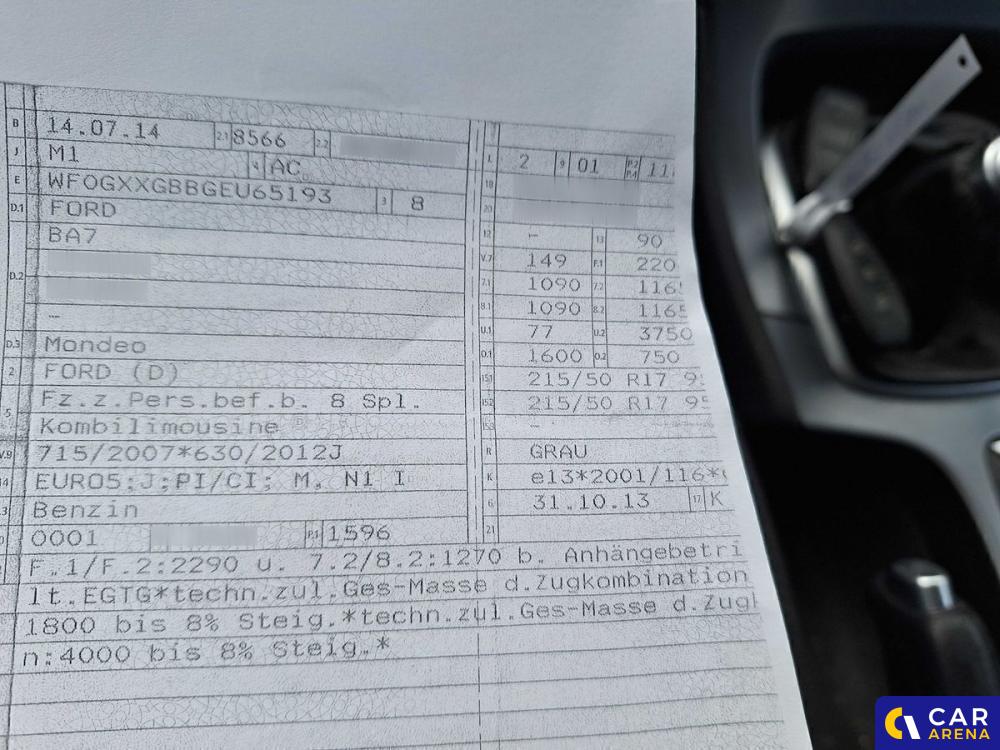 B 14.07.14 2.1 8566 2.2
J M1 4 AC
E WF0GXXGBBGEU65193 3 8
D.1 FORD
BA7
D.2
--
D.3 Mondeo
2 FORD (D)
5 Fz.z.Pers.bef.b. 8 Spl.
Kombilimousine
V.9 715/2007*630/2012J
14 EURO5;J;PI/CI; M, N1 I
Benzin
0001 P.1 1596
L 2 9 01 P.2 P.4 11
18
20
12 -- 13 90
V.7 149 F.1 220
7.1 1090 7.2 116
8.1 1090 8.2 116
U.1 77 U.2 3750
O.1 1600 O.2 750
15.1 215/50 R17 9
15.2 215/50 R17 95
15.3 --
R GRAU
K e13*2001/116*
6 31.10.13 17 K
21
F.1/F.2:2290 u. 7.2/8.2:1270 b. Anhängebetri
lt.EGTG*techn.zul.Ges-Masse d.Zugkombination
1800 bis 8% Steig.*techn.zul.Ges-Masse d.Zug
n:4000 bis 8% Steig.*
CAR
ARENA